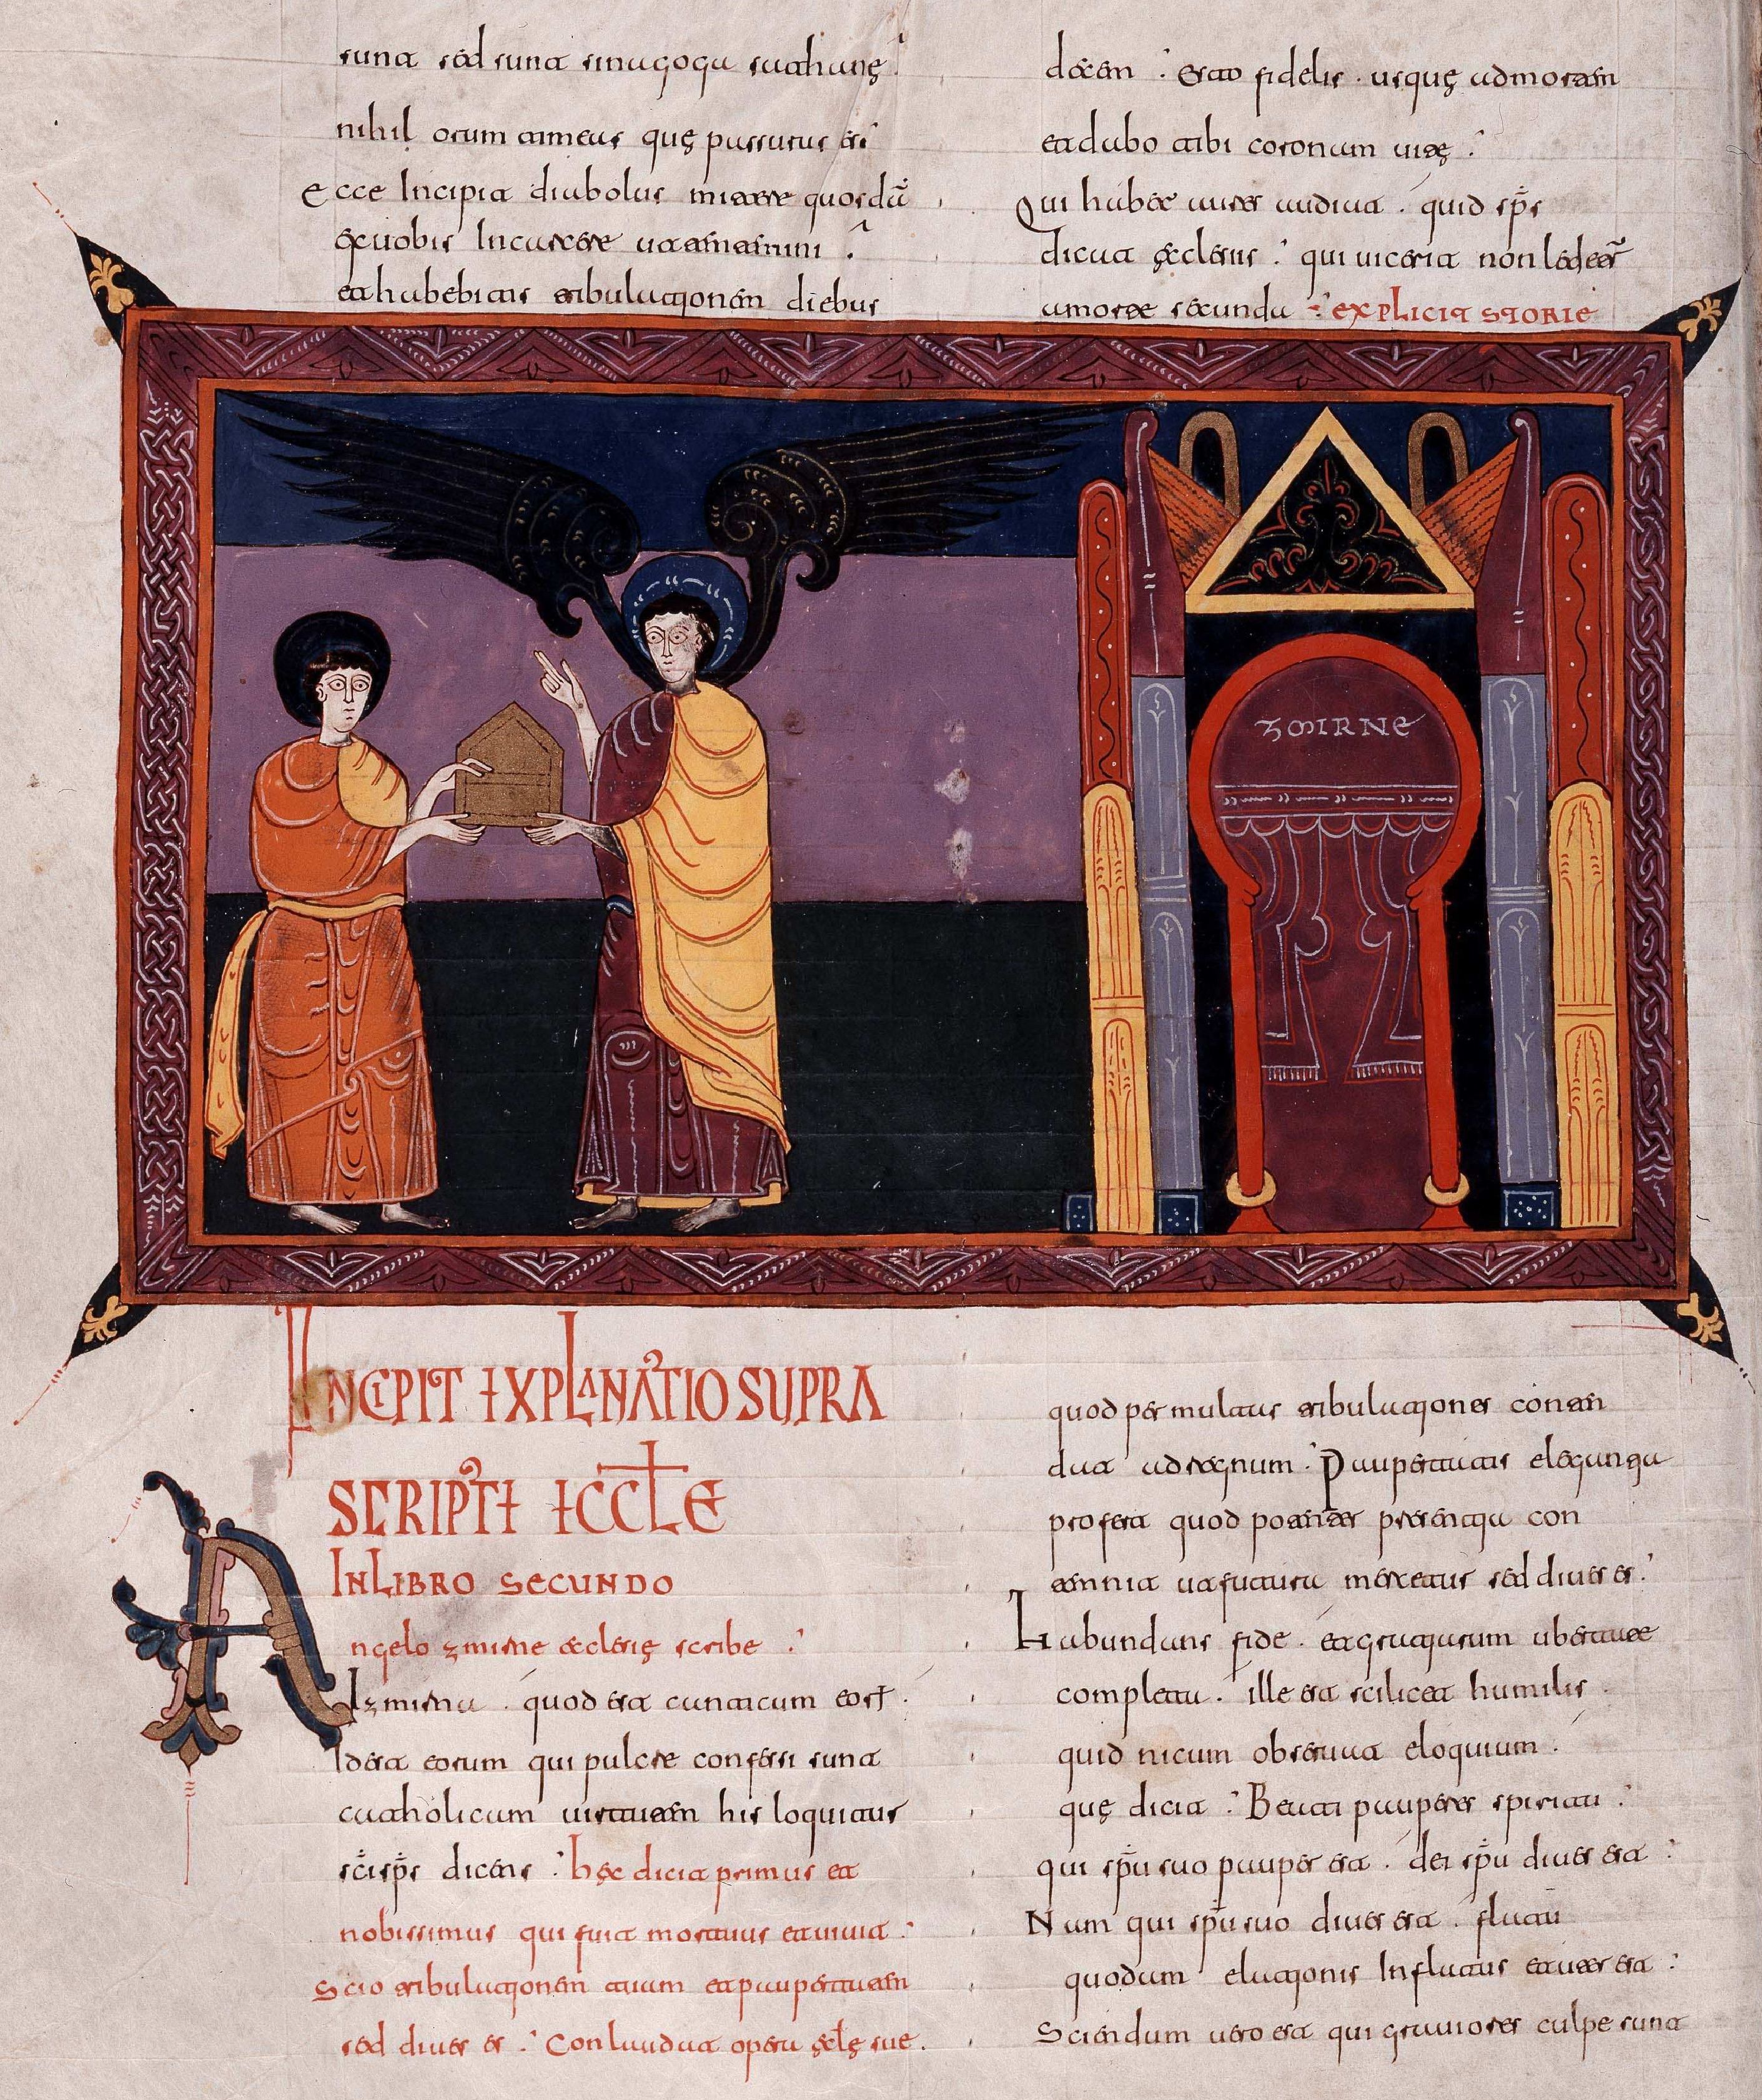 sunt sed sunt sinagoga sathanę .
nihil orum timeas quę passurus es
Ecce Incipit diabolus mittere quosdā
ex uobis In carcere ut temtemini .
et habebitis tribulationem diebus
decem : Esto fidelis . usquę ad mortem
et dabo tibi coronam uitę :
Qui habet aures audiat . quid sp̄s
dicat ęclesiis : qui uicerit non ledet̄
a morte secunda : EXPLICIT STORIE
ZMIRNE
INCIPIT EXPLANATIO SUPRA
SCRIPTE ECCLE
IN LIBRO SECUNDO
Angelo zmirne eclesię scribe :
Izmirna . quod est canticum eorum .
Id est eorum qui pulcre confessi sunt
catholicam uirtutem his loquitur
sc̄is sp̄s dicens : hęc dicit primus et
nobissimus qui fuit mortuus et uiuit :
Scio tribulationem tuam et paupertatem
sed diues es : Conlaudat opera ęclę sue .
quod per multas tribulationes conten
dat ad regnum : Paupertatis elegantia
profert quod potenter presentia con
temnit ut futura mercetur sed diues es :
Habundans fide . et gratiarum ubertate
completa . ille est scilicet humilis .
qui dnicum obseruat eloquium .
quę dicit : Beati pauperes spiritu :
qui sp̄u suo pauper est . dei sp̄u diues est :
Nam qui sp̄u suo diues est . flatu
quodam elationis Inflatus et uetus est :
Sciendum uero est qui grauiores culpe sunt